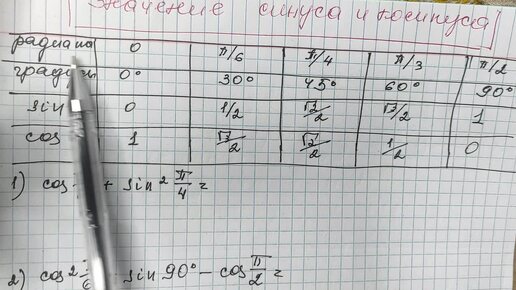 Значение синуса и косинуса
радианы 0 π/6 π/4 π/3 π/2
градусы 0° 30° 45° 60° 90°
sin 0 1/2 √2/2 √3/2 1
cos 1 √3/2 √2/2 1/2 0
1) cos + sin² π/4 =
2) cos² π/6 sin 90° − cos π/2 =